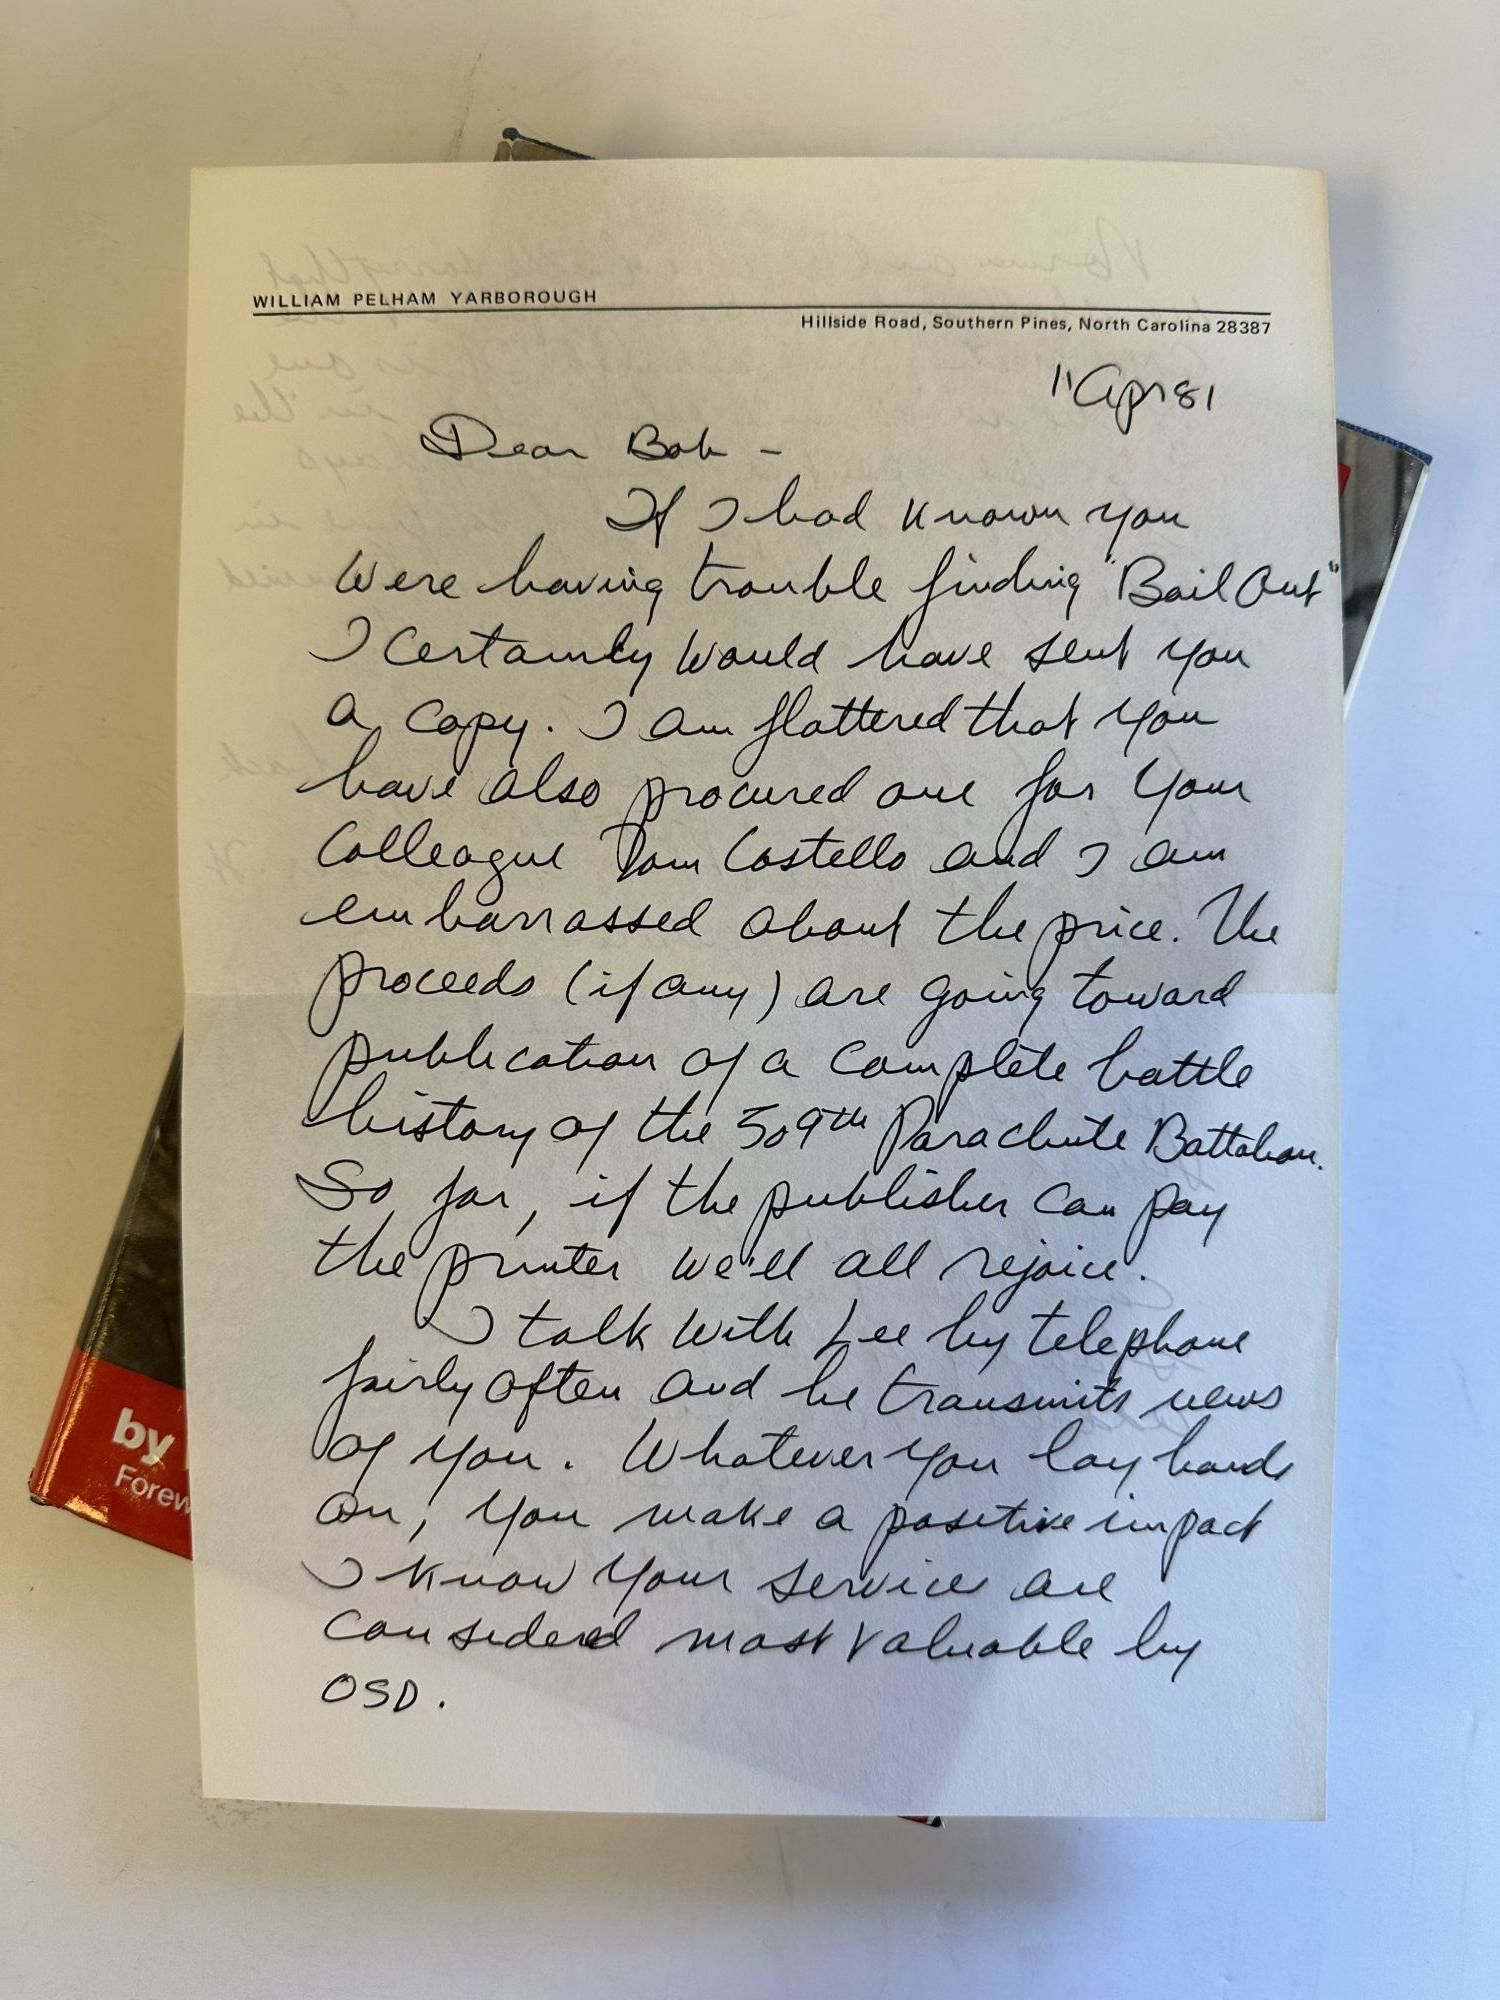 WILLIAM PELHAM YARBOROUGH
Hillside Road, Southern Pines, North Carolina 28387
11 Apr 81
Dear Bob -
If I had known you
were having trouble finding "Bail Out"
I certainly would have sent you
a copy. I am flattered that you
have also procured one for your
colleague Tom Costello and I am
embarrassed about the price. The
proceeds (if any) are going toward
publication of a complete battle
history of the 509th Parachute Battalion.
So far, if the publisher can pay
the printer we'll all rejoice.
I talk with Lee by telephone
fairly often and he transmits news
of you. Whatever you lay hands
on, you make a positive impact
I know your services are
considered most valuable by
OSD.
by
Forew